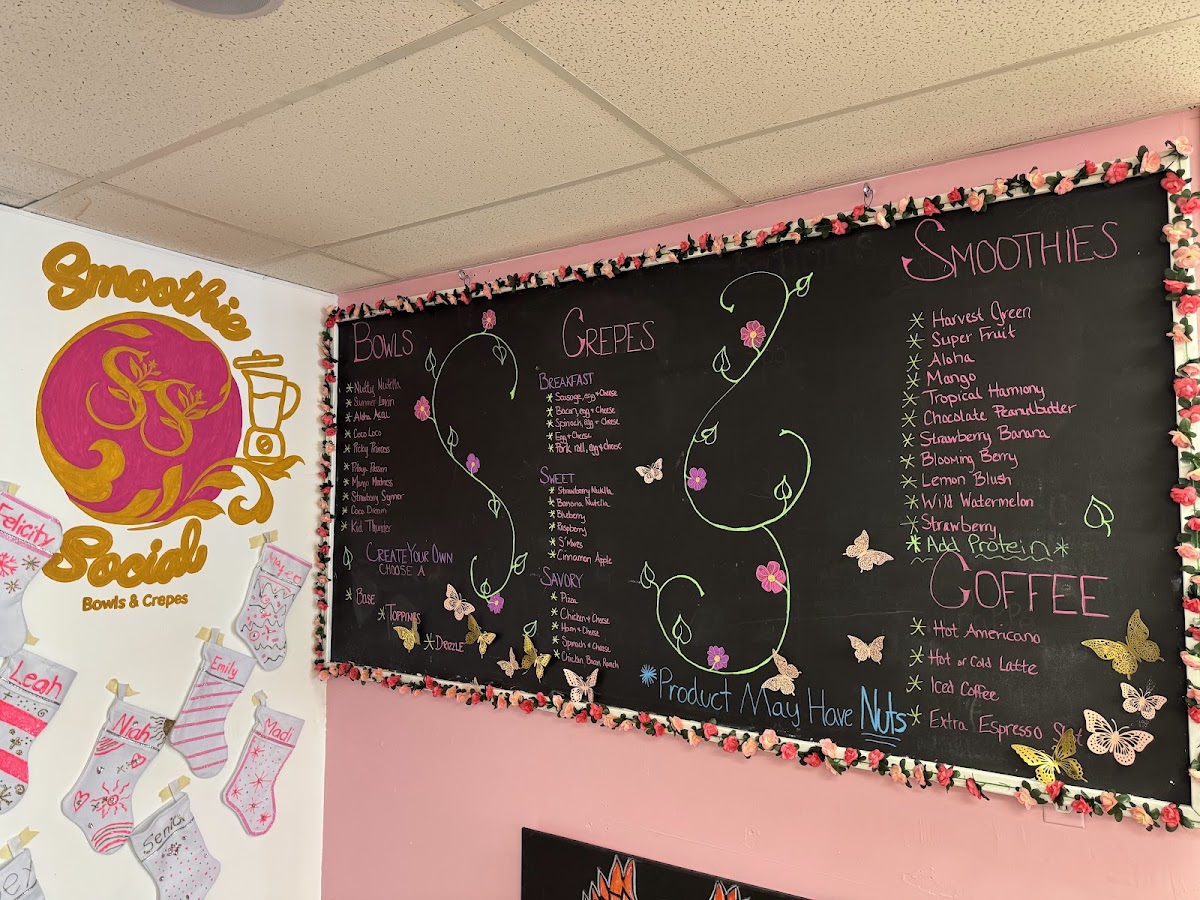 Smoothie
SS
Social
Bowls & Crepes
Felicity
Leah
Niah
Emily
Madi
BOWLS
Nutty Nutella
Summer Lovin
Aloha Acai
Coco Loco
Picky Princess
Pitaya Passion
Mango Madness
Strawberry Summer
Coco Dream
Kid Thunder
CREATE YOUR OWN
CHOOSE A
BASE
TOPPINGS
DRIZZLE
CREPES
BREAKFAST
Sausage, egg + Cheese
Bacon, egg + Cheese
Spinach, egg + Cheese
Egg + Cheese
Pork roll, egg + cheese
SWEET
Strawberry Nutella
Banana Nutella
Blueberry
Raspberry
S'Mores
Cinnamon Apple
SAVORY
Pizza
Chicken + Cheese
Ham + Cheese
Spinach + Cheese
Chicken Bacon Ranch
*PRODUCT MAY HAVE NUTS
SMOOTHIES
Harvest Green
Super Fruit
Aloha
Mango
Tropical Harmony
Chocolate Peanutbutter
Strawberry Banana
Blooming Berry
Lemon Blush
Wild Watermelon
Strawberry
*Add Protein*
COFFEE
Hot Americano
Hot or Cold Latte
Iced Coffee
Extra Espresso